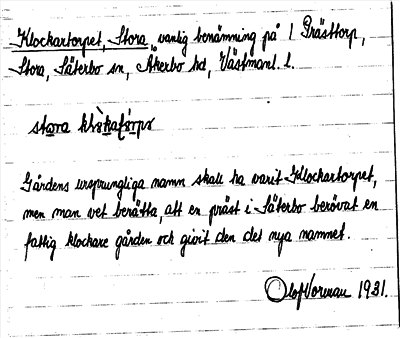 Klockartorpet, Stora, vanlig benämning på 1 Prästtorp,
Stora, Säterbo sn, Åkerbo hd, Västmanl. l.
stora
Gårdens ursprungliga namn skall ha varit Klockartorpet,
men man vet berätta, att en präst i Säterbo berövat en
fattig klockare gården och givit den det nya namnet.
Olof Vorenau 1931.